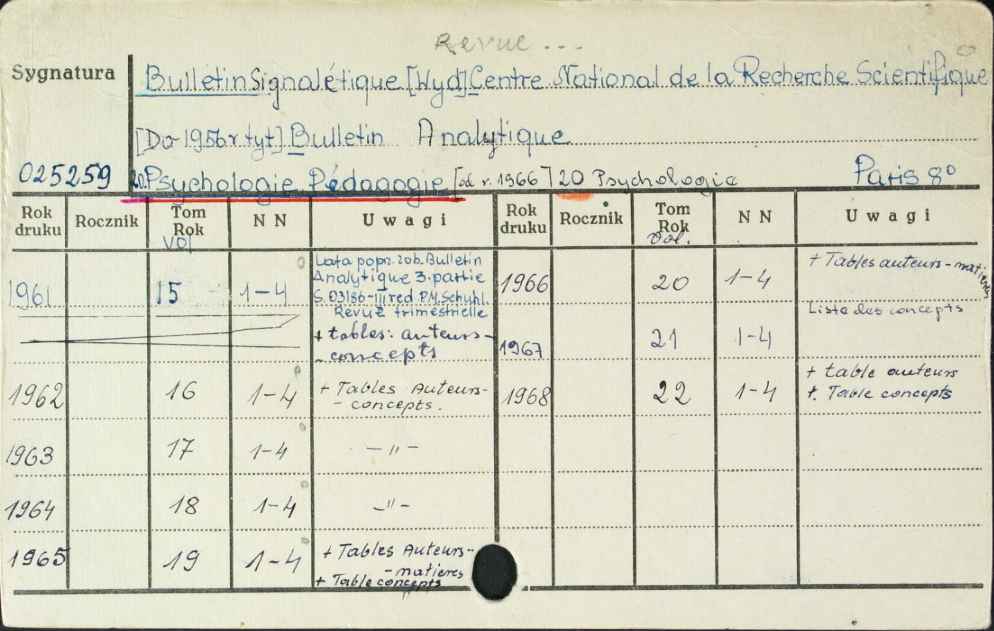 Revue ...
Sygnatura
Bulletin Signalétique [Wyd] Centre National de la Recherche Scientifique
[Do 1956 r tyt] Bulletin Analytique
025259 20. Psychologie Pédagogie [od r. 1966] 20 Psychologie Paris 8°
Rok druku Rocznik Tom Rok vol NN Uwagi Rok druku Rocznik Tom Rok vol. NN Uwagi
1961 15 1-4 Lata popr. zob. Bulletin
Analytique 3. partie
S. 03186-III red. P.M. Schuhl.
Revue trimestrielle
+ tables: auteurs-
- concepts
1962 16 1-4 + Tables Auteurs-
- concepts.
1963 17 1-4 — " —
1964 18 1-4 — " —
1965 19 1-4 + Tables Auteurs-
- matières
+ Table concepts
1966 20 1-4 + Tables auteurs-matières
Liste des concepts
1967 21 1-4
1968 22 1-4 + table auteurs
+ Table concepts